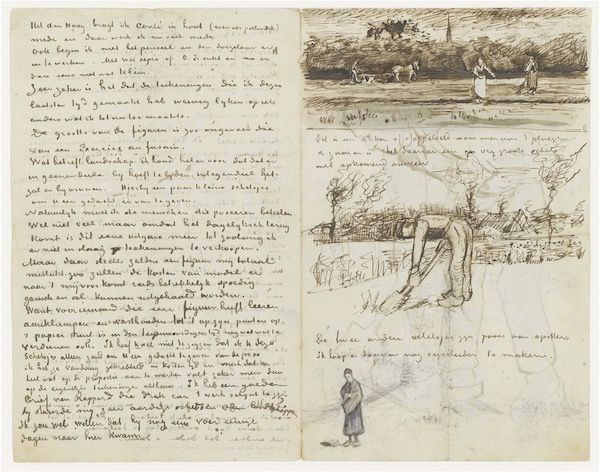 Uit den Haag bragt ik Conté in hout (even als potlooden)
mede en daar werk ik nu veel mede.
Ook begin ik met het penseel en den doezelaar er
in te werken. Met wat sepia of O.I. inkt en nu en
dan eens met wat kleur.
Zeer zeker is het dat de teekeningen die ik dezer
laatsten tijd gemaakt heb weinig lijken op iets
anders wat ik tot nu toe maakte.
De grootte van de figuren is zoo ongeveer die
van een Exercice au fusain.
Wat betreft landschap, ik houd het er voor dat dat er
in geenendeele bij hoeft te lijden, integendeel het
zal er bij winnen. Hierbij een paar kleine schetsjes
om U een gedacht er van te geven.
Natuurlijk moet ik de menschen die poseeren betalen
Wel niet veel maar omdat het dagelijksch terug
komt is dit eene uitgave meer tot zoolang ik
er niet in slaag teekeningen te verkoopen.
Maar daar slechts zelden een figuur mij totaal
mislukt zoo zullen de kosten van model er
naar 't mij voorkomt reeds betrekkelijk spoedig
gansch en al kunnen uitgehaald worden.
Want voor iemand die een figuur heeft leeren
aanklampen en vasthouden tot 't op zijn pooten op
't papier staat is in den tegenwoordigen tijd nog wel wat te
verdienen ook. Ik hoef wel niet te zeggen dat ik U deze
schetsjes alleen zend om U een gedacht te geven van de pose
Ik heb ze vandaag gekrabbeld in korten tijd en merk dat er
heel wat op de proportie aan te merken valt zeker meer dan
op de eigentlijke teekeningen althans. Ik heb een goeden
brief van Rappard die druk aan 't werk schijnt te zijn
hij stuurde mij zeer aardige schetsen van landschappen
Ik zou wel willen dat hij nog eens voor eenige
dagen naar hier kwam.
Dit is een akker of stoppelveld waar men aan 't ploegen
& zaaien is heb daarvan een vrij groote schets
met opkomend onweer
De twee andere schetsjes zijn poses van spitters
Ik hoop er daarvan nog verscheiden te maken.